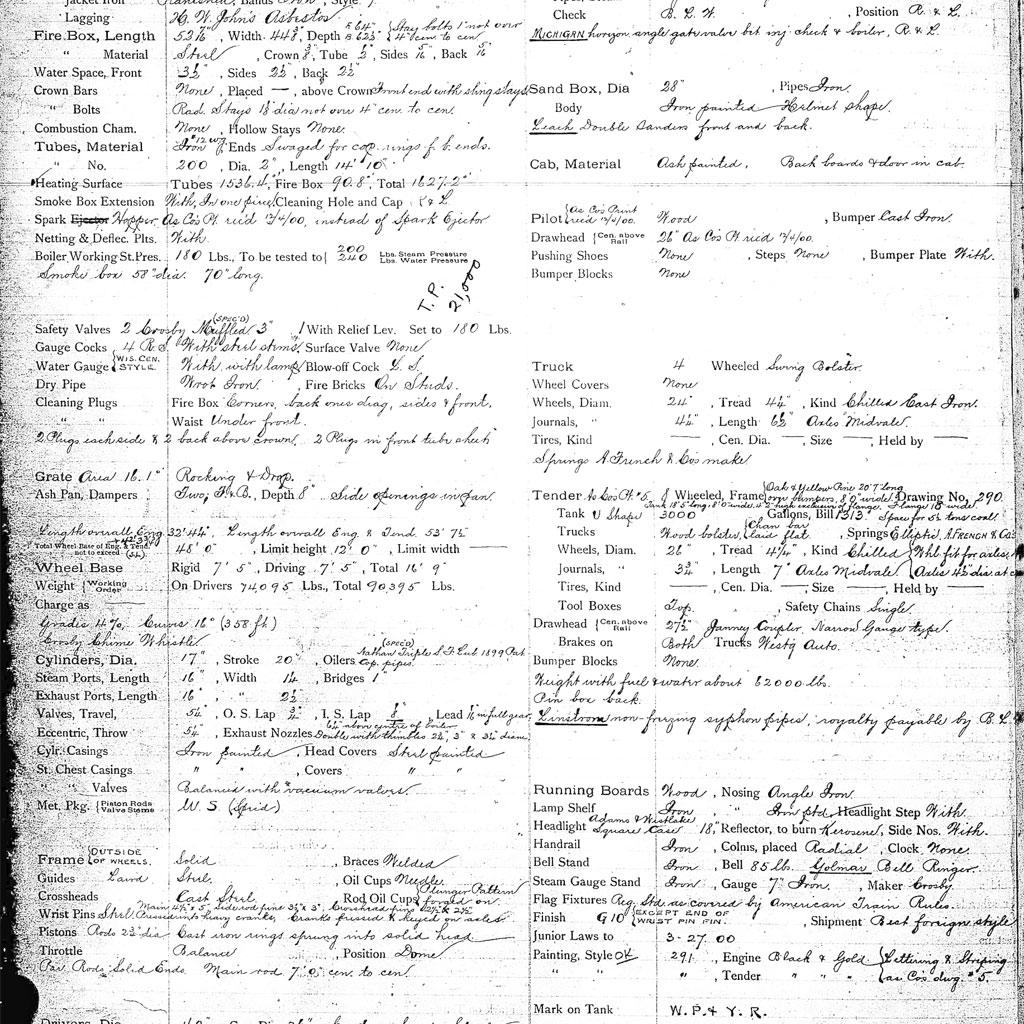 Jacket Iron , Bands Iron , Style
Lagging H. W. Johns Asbestos
Fire Box, Length 53 1/16" , Width 44 3/8", Depth F 64" B 62 3/8" { Stay bolts 1" not over 4" cen. to cen.
" Material Steel , Crown 3/8, Tube 1/2, Sides 5/16, Back 5/16"
Water Space, Front 3 1/2" , Sides 2 1/2", Back 2 1/2"
Crown Bars None , Placed — , above Crown Front end with sling stays
" Bolts Rad. Stays 1 1/8" dia not over 4" cen. to cen.
Combustion Cham. None , Hollow Stays None.
Tubes, Material Iron #12 W.G. , Ends Swaged for cop. rings f. b. ends.
" No. 200 , Dia. 2" , Length 14' 10"
Heating Surface Tubes 1536.4", Fire Box 90.8", Total 1627.2"
Smoke Box Extension With, In one piece, Cleaning Hole and Cap R & L
Spark Ejector Hopper As Co's Pt. rec'd 12/4/00, instead of Spark Ejector
Netting & Deflec. Plts. With.
Boiler Working St. Pres. 180 Lbs., To be tested to { 200 Lbs. Steam Pressure 240 Lbs. Water Pressure
Smoke box 58" dia. 70" long.
T. P. 21,000
Safety Valves 2 Crosby Muffled (SPEC'D) 3" 1 With Relief Lev. Set to 180 Lbs.
Gauge Cocks 4 R. S. With steel stems, Surface Valve None
Water Gauge { WIS. CEN. STYLE. With, with lamp, Blow-off Cock L. S.
Dry Pipe Wrot Iron , Fire Bricks On Studs.
Cleaning Plugs Fire Box Corners, back ones diag, sides & front.
" " Waist Under front.
2 Plugs each side & 2 back above crown, 2 Plugs in front tube sheet
Grate Area 16.1" Rocking & Drop.
Ash Pan, Dampers Two, F. & B., Depth 8" Side openings in pan.
Length overall Eng. 32' 4 3/4", Length overall Eng & Tend. 53' 7 1/2
Total Wheel Base of Eng. & Tend. not to exceed 48' 0" , Limit height 12' 0" , Limit width —
Wheel Base Rigid 7' 5" , Driving 7' 5" , Total 16' 9"
Weight { Working Order On Drivers 74095 Lbs., Total 90395 Lbs.
Charge as —
Grades 4%. Curves 16° (358 ft)
Crosby Chime Whistle.
Cylinders, Dia. 17" , Stroke 20" , Oilers (SPEC'D) Nathan Triple S. F. Lub. 1899 Pat. Cop. pipes.
Steam Ports, Length 16" , Width 1 1/4 , Bridges 1"
Exhaust Ports, Length 16" , " 2 1/2
Valves, Travel, 5 1/4" , O. S. Lap 3/4" , I. S. Lap , Lead 1/16 in full gear.
Eccentric, Throw 5 1/4 , Exhaust Nozzles Double with thimbles 2 3/4", 3" & 3 1/4" diam.
Cylr. Casings Iron painted , Head Covers Steel painted
St. Chest Casings " " , Covers " "
" " Valves Balanced with vacuum valves.
Met. Pkg. { Piston Rods Valve Stems U. S. (Spec'd)
Frame { OUTSIDE OF WHEELS. Solid , Braces Welded
Guides Laird Steel. , Oil Cups Needle.
Crossheads Cast Steel , Rod Oil Cups Plunger Pattern forged on.
Wrist Pins Steel Pressed into heavy cranks. Cranks pressed & keyed on axles
Pistons Rods 2 3/4" dia Cast iron rings sprung into solid head
Throttle Balance , Position Dome.
Par. Rods Solid Ends Main rod 7' 0" cen. to cen.
Check B. L. W. , Position R. & L.
MICHIGAN horizon angle gate valve bet inj. check & boiler, R. & L.
Sand Box, Dia 28" , Pipes Iron.
Body Iron painted Helmet shape.
Leach Double Sanders front and back.
Cab, Material Ash painted, Back boards & door in cab.
Pilot { As Co's Print rec'd 12/4/00. Wood , Bumper Cast Iron.
Drawhead { Cen. above Rail 26" As Co's Pt rec'd 12/4/00.
Pushing Shoes None , Steps None , Bumper Plate With.
Bumper Blocks None
Truck 4 Wheeled Swing Bolster.
Wheel Covers None
Wheels, Diam. 24" , Tread 4 1/4" , Kind Chilled Cast Iron.
Journals, " 4 1/4" , Length 6 1/2" Axles Midvale.
Tires, Kind — , Cen. Dia. — , Size — , Held by —
Springs A. French & Co's make
Tender As Co's Pt. #5 8 Wheeled, Frame { Oak & Yellow Pine 20' 7" long over bumpers, 8' 0" wide. Drawing No. 290.
Tank U Shape 3000 Gallons, Bill 1313. Space for 5 1/2 tons coal
Trucks Wood bolster, Chan bar laid flat , Springs Elliptic, A. FRENCH & Co's
Wheels, Diam. 26" , Tread 4 1/4" , Kind Chilled { Whl fit for axles
Journals, " 3 3/4" , Length 7" Axles Midvale. { Axles 4 3/8" dia. at c
Tires, Kind — , Cen. Dia. — , Size — , Held by —
Tool Boxes Top. , Safety Chains Single.
Drawhead { Cen. above Rail 27 1/2" Janney Coupler, Narrow Gauge type.
Brakes on Both Trucks Westg Auto.
Bumper Blocks None.
Weight with fuel & water about 62000 lbs.
Pin box back.
Linstrom non-freezing syphon pipes, royalty payable by B. L.
Running Boards Wood , Nosing Angle Iron.
Lamp Shelf Iron , " Iron ptd, Headlight Step With.
Headlight Adams & Westlake Square Case 18" Reflector, to burn Kerosene, Side Nos. With.
Handrail Iron , Colms, placed Radial , Clock None.
Bell Stand Iron , Bell 85 lb. Golmar Bell Ringer.
Steam Gauge Stand Iron , Gauge 7" Iron. , Maker Crosby
Flag Fixtures Reg. Std. as covered by American Train Rules.
Finish G 10 { EXCEPT END OF WRIST PIN PIN. , Shipment Best foreign style
Junior Laws to 3-27.00
Painting, Style OK 291 , Engine Black & Gold { Lettering & Striping
" " " , Tender " " " { as Co's dwg. # 5.
Mark on Tank W. P. & Y. R.